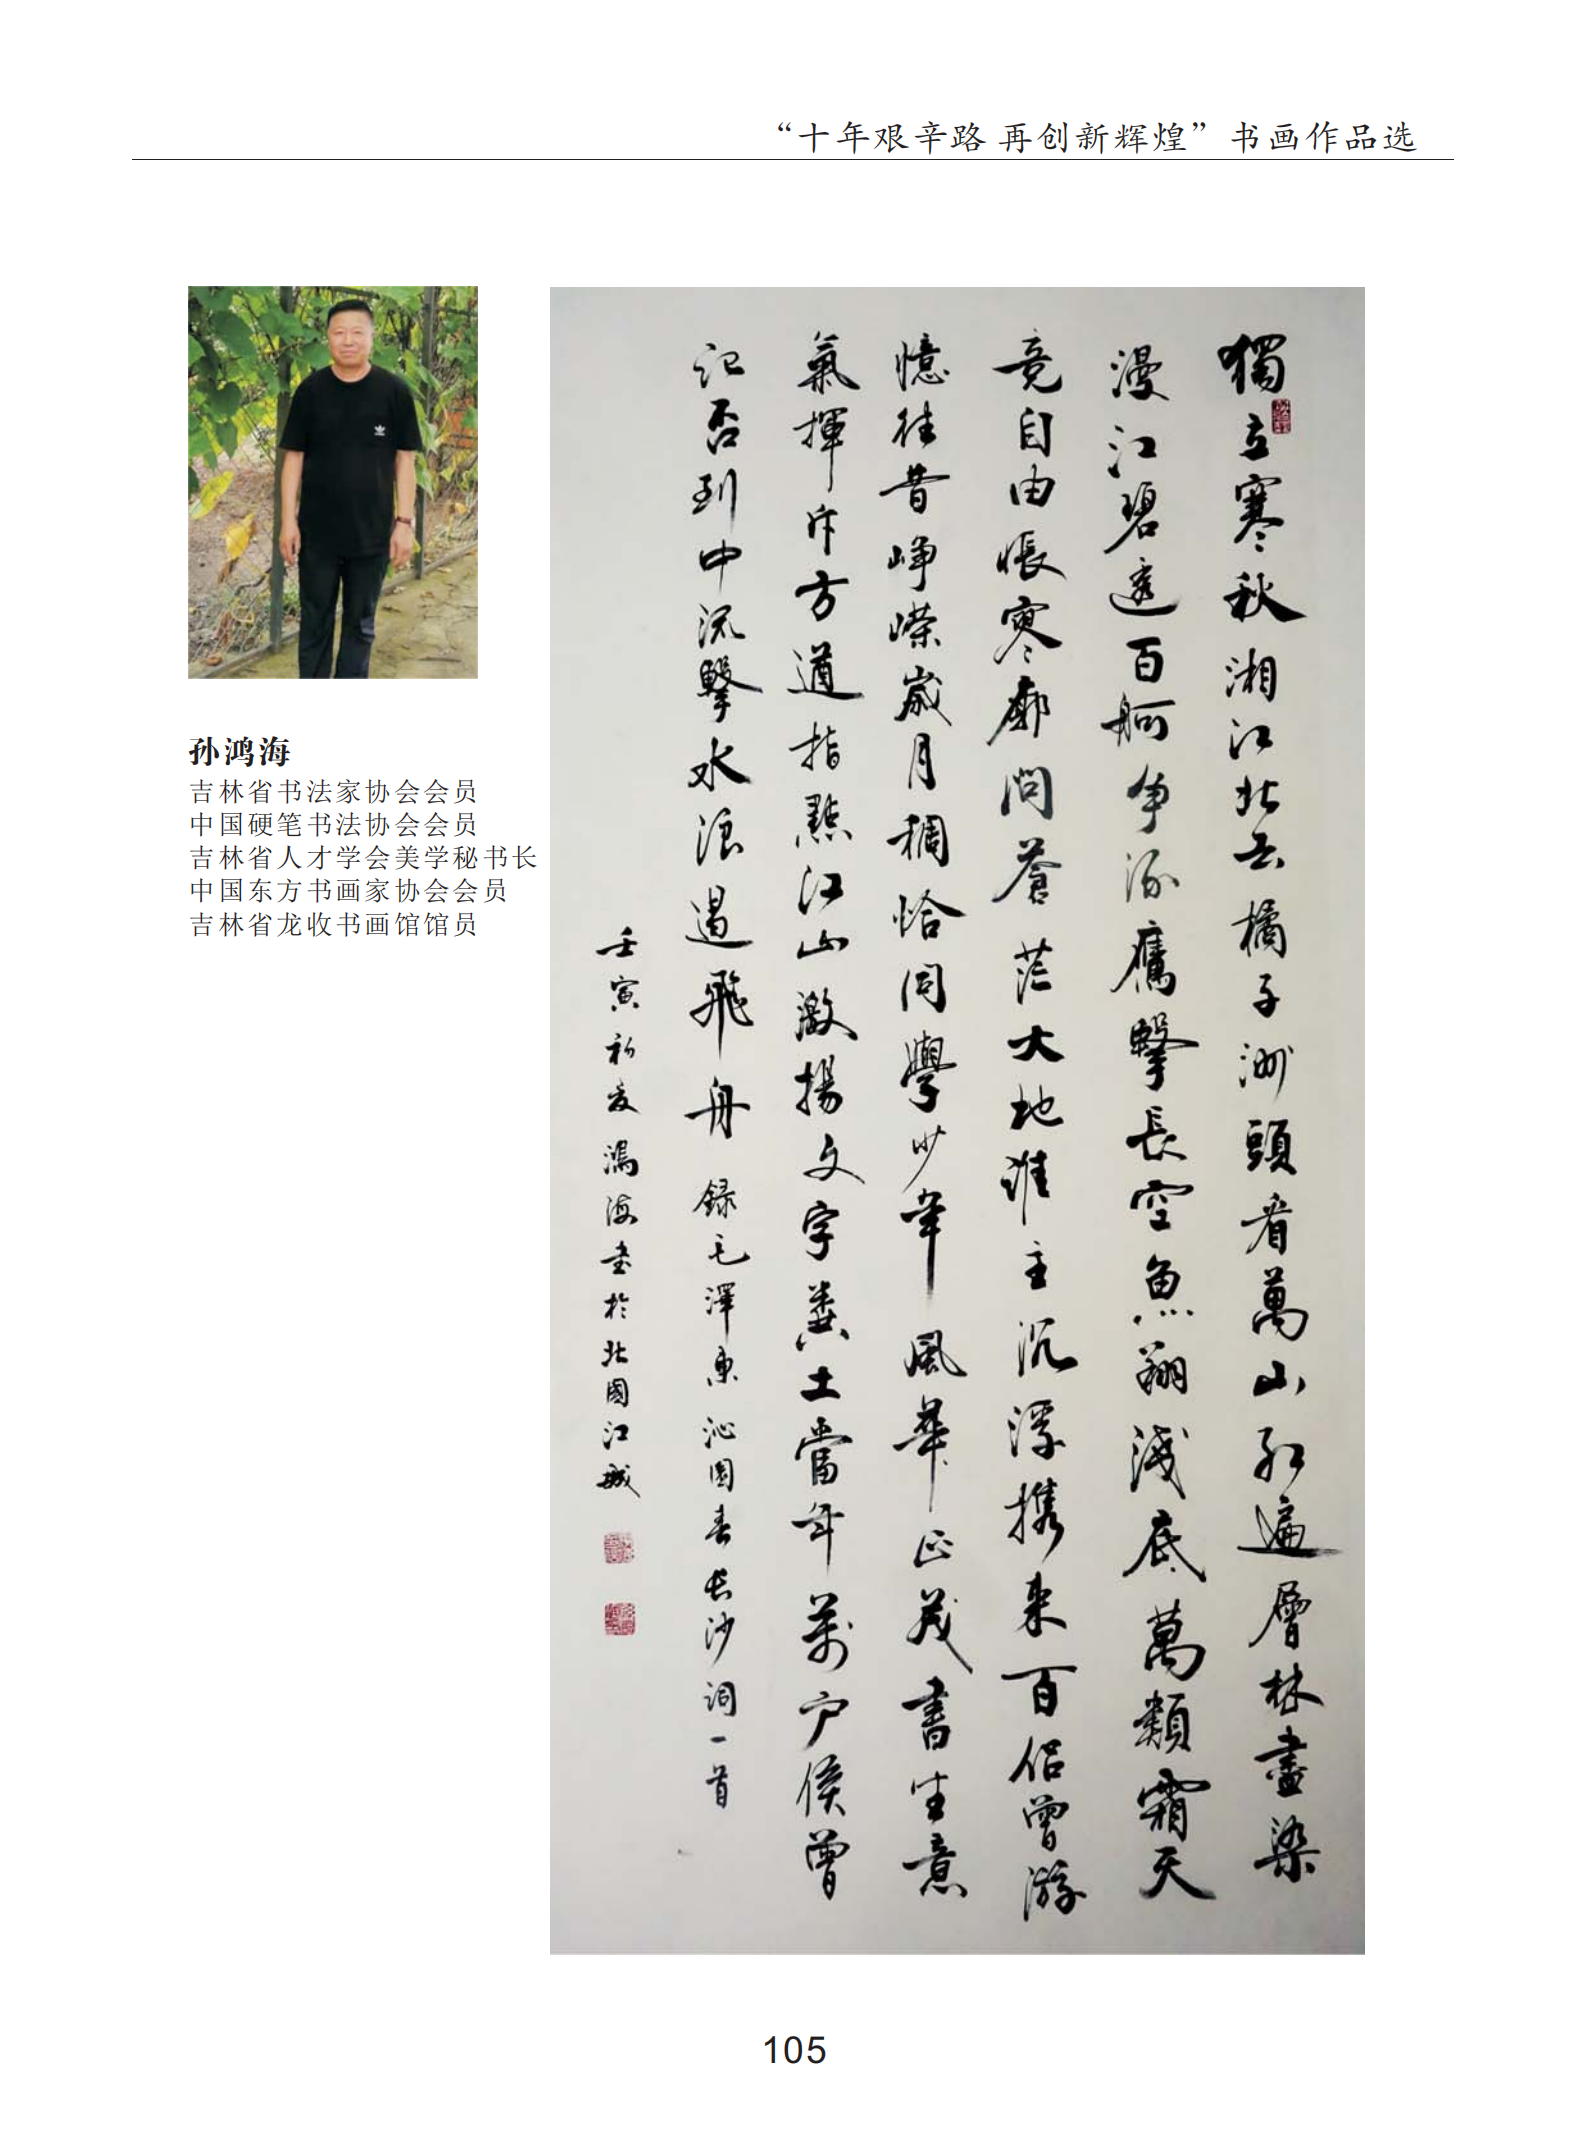 “十年艰辛路 再创新辉煌”书画作品选
孙鸿海
吉林省书法家协会会员
中国硬笔书法协会会员
吉林省人才学会美学秘书长
中国东方书画家协会会员
吉林省龙收书画馆馆员
獨立寒秋湘江北去橘子洲頭看萬山紅遍層林盡染
漫江碧透百舸争流鷹擊長空魚翔淺底萬類霜天
竞自由悵寥廓問蒼茫大地誰主沉浮携来百侣曾游
憶往昔峥嵘歲月稠恰同學少年風華正茂書生意
氣揮斥方遒指點江山激揚文字糞土當年萬户侯曾
记否到中流擊水浪遏飛舟 録毛澤東沁園春长沙词一首
壬寅初夏鴻海书於北國江城
105